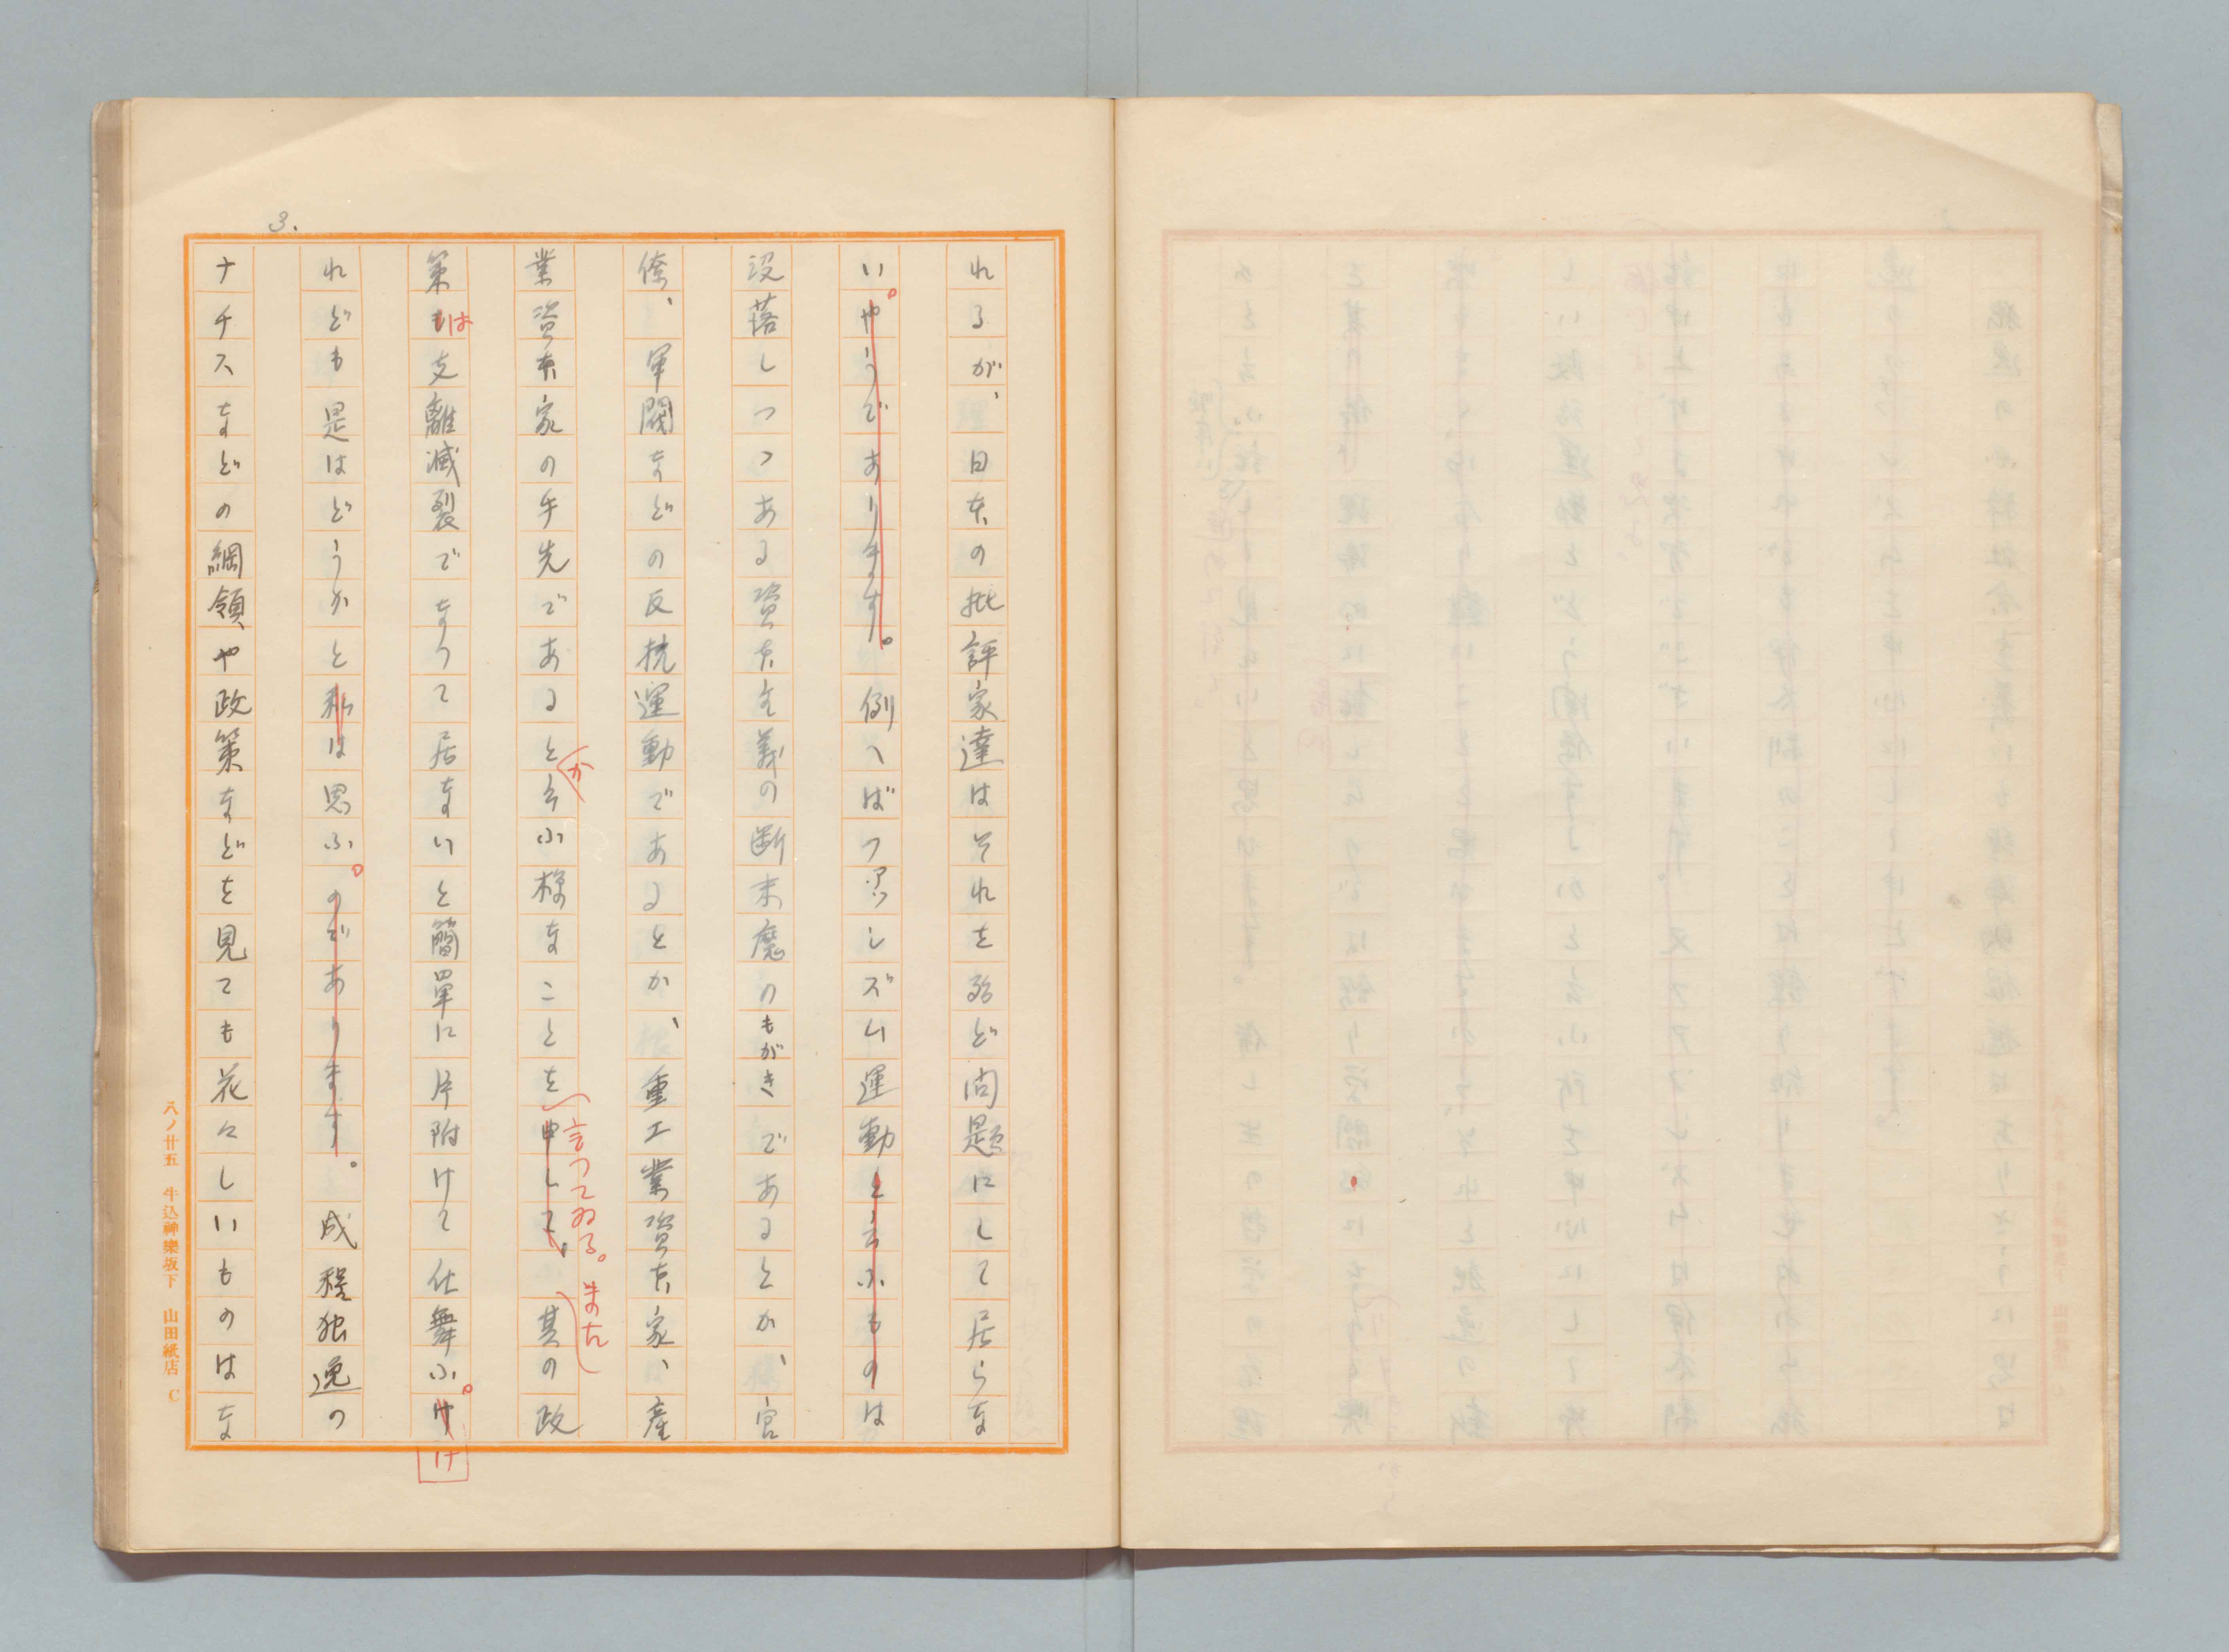 3.
れるが、日本の批評家達はそれを殆ど問題にして居らな
い。やうであります。例へばファッシズム運動と云ふものは
没落しつつある資本主義の断末魔のもがきであるとか、官
僚、軍閥などの反抗運動であるとか、重工業資本家、産
業資本家の手先であるとか云ふ様なことを申して、言つてゐる。また其の政
策もは支離滅裂でなつて居ないと簡単に片附けて仕舞ふ。けけ
れども是はどうかと私は思ふ。のであります。成程独逸の
ナチスなどの綱領や政策などを見ても花々しいものはな
八ノ廿五 牛込神樂坂下 山田紙店 C